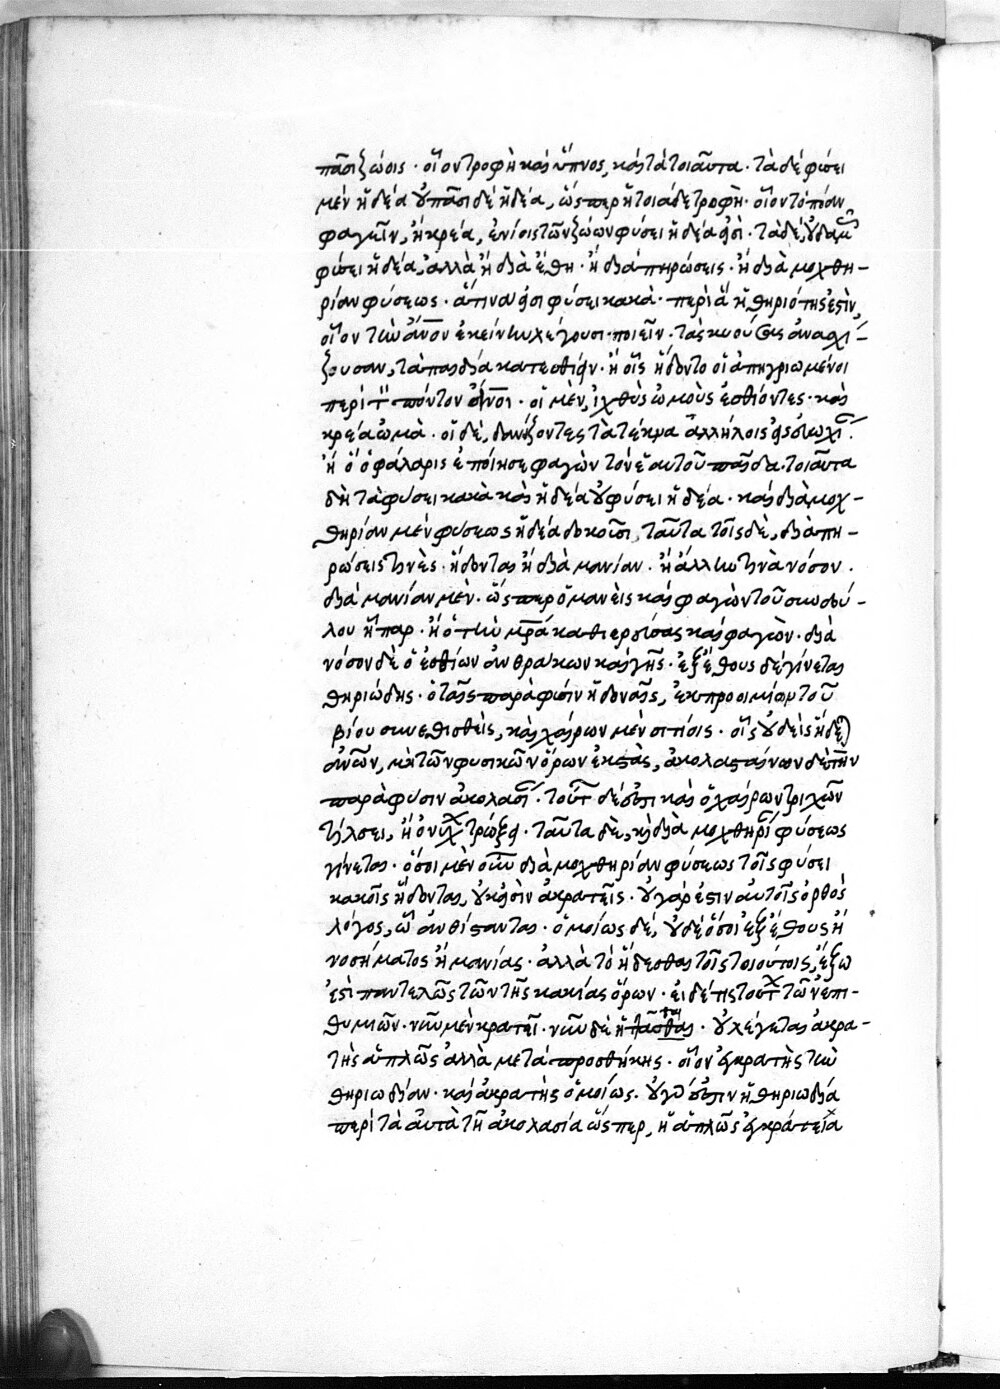 πᾶσι ζώοις · οἷον τροφὴ καὶ ὕπνος, καὶ τὰ τοιαῦτα · τὰ δὲ φύσει
μὲν ἡδέα οὐ πᾶσι δὲ ἡδέα, ὥσπερ ἡ τοιάδε τροφὴ · οἷον τὸ πόαν
φαγεῖν, ἢ κρέα, ἐνίοις τῶν ζώων φύσει ἡδέα ἐστὶ · τὰ δὲ, οὐδαμῶς
φύσει ἡδέα, ἀλλὰ ἢ διὰ ἔθη · ἢ διὰ πηρώσεις · ἢ διὰ μοχθη-
ρίαν φύσεως · ἅτινα εἰσι φύσει κακὰ · περὶ ἃ ἡ θηριότης ἐστὶν,
οἷον τὴν ἄνον ἐκείνην λέγουσι ποιεῖν · τὰς κυούσας ἀνασχί-
ζουσαν, τὰ παιδία κατεσθίειν · ἢ οἷς ἥδοντο οἱ ἀπηγριωμένοι
περὶ τὸν πόντον ἄνοι · οἱ μὲν, ἰχθὺς ὠμοὺς ἐσθίοντες · καὶ
κρέα ὠμὰ · οἱ δὲ, δανείζοντες τὰ τέκνα ἀλλήλοις εἰς εὐωχίαν ·
ἢ ὃ ὁ φάλαρις ἐποίησε φαγὼν τὸν ἑαυτοῦ παῖδα · τοιαῦτα
δὴ τὰ φύσει κακὰ καὶ ἡδέα οὐ φύσει ἡδέα · καὶ διὰ μοχ-
θηρίαν μὲν φύσεως ἡδέα δοκοῦσι, ταῦτα τοῖς δὲ, διὰ πη-
ρώσεις τινὲς · ἥδονται ἢ διὰ μανίαν · ἢ ἄλλην τινὰ νόσον ·
διὰ μανίαν μὲν · ὥσπερ ὁ μανεὶς καὶ φαγὼν τοῦ συνδού-
λου ἧπαρ · ἢ ὁ τὴν μρα καθιερεύσας καὶ φαγὼν · διὰ
νόσον δὲ ὁ ἐσθίων ἀνθράκων καὶ γῆς · ἐξ ἔθους δὲ γίνεται
θηριώδης · ὁ ταῖς παρὰ φύσιν ἡδοναῖς, ἐκ προοιμίων τοῦ
βίου συνεθισθεὶς, καὶ χαίρων μὲν σιτίοις · οἷς οὐδεὶς ἥδεται
ἀνων, μὴ τῶν φυσικῶν ὅρων ἐκστὰς, ἀκολασταίνων δὲ τὴν
παρὰ φύσιν ἀκολασίαν · τοιοῦτος δέ ἐστι καὶ ὁ χαίρων τριχῶν
τίλσει, ἢ ὀνυχ τρώξει · ταῦτα δὲ, καὶ διὰ μοχθηρίαν φύσεως
γίνεται · ὅσοι μὲν οὖν διὰ μοχθηρίαν φύσεως τοῖς φύσει
κακοῖς ἥδονται, οὐκ εἰσὶν ἀκρατεῖς · οὐ γάρ ἐστιν αὐτοῖς ὀρθὸς
λόγος, ᾧ ἀνθίστανται · ὁμοίως δὲ, οὐδὲ ὅσοι ἐξ ἔθους ἢ
νοσήματος ἢ μανίας · ἀλλὰ τὸ ἥδεσθαι τοῖς τοιούτοις, ἔξω
ἐστὶ παντελῶς τῶν τῆς κακίας ὅρων · εἰ δέ τις τούτων τῶν ἐπι-
θυμιῶν · νῦν μὲν κρατεῖ · νῦν δὲ ἡττᾶσθαι · οὐ λέγεται ἀκρα-
τὴς ἁπλῶς ἀλλὰ μετὰ προσθήκης · οἷον ἐγκρατὴς τὴν
θηριωδίαν · καὶ ἀκρατὴς ὁμοίως · οὐ γάρ ἐστιν ἡ θηριωδία
περὶ τὰ αὐτὰ τῇ ἀκολασίᾳ ὥσπερ, ἡ ἁπλῶς ἐγκράτεια